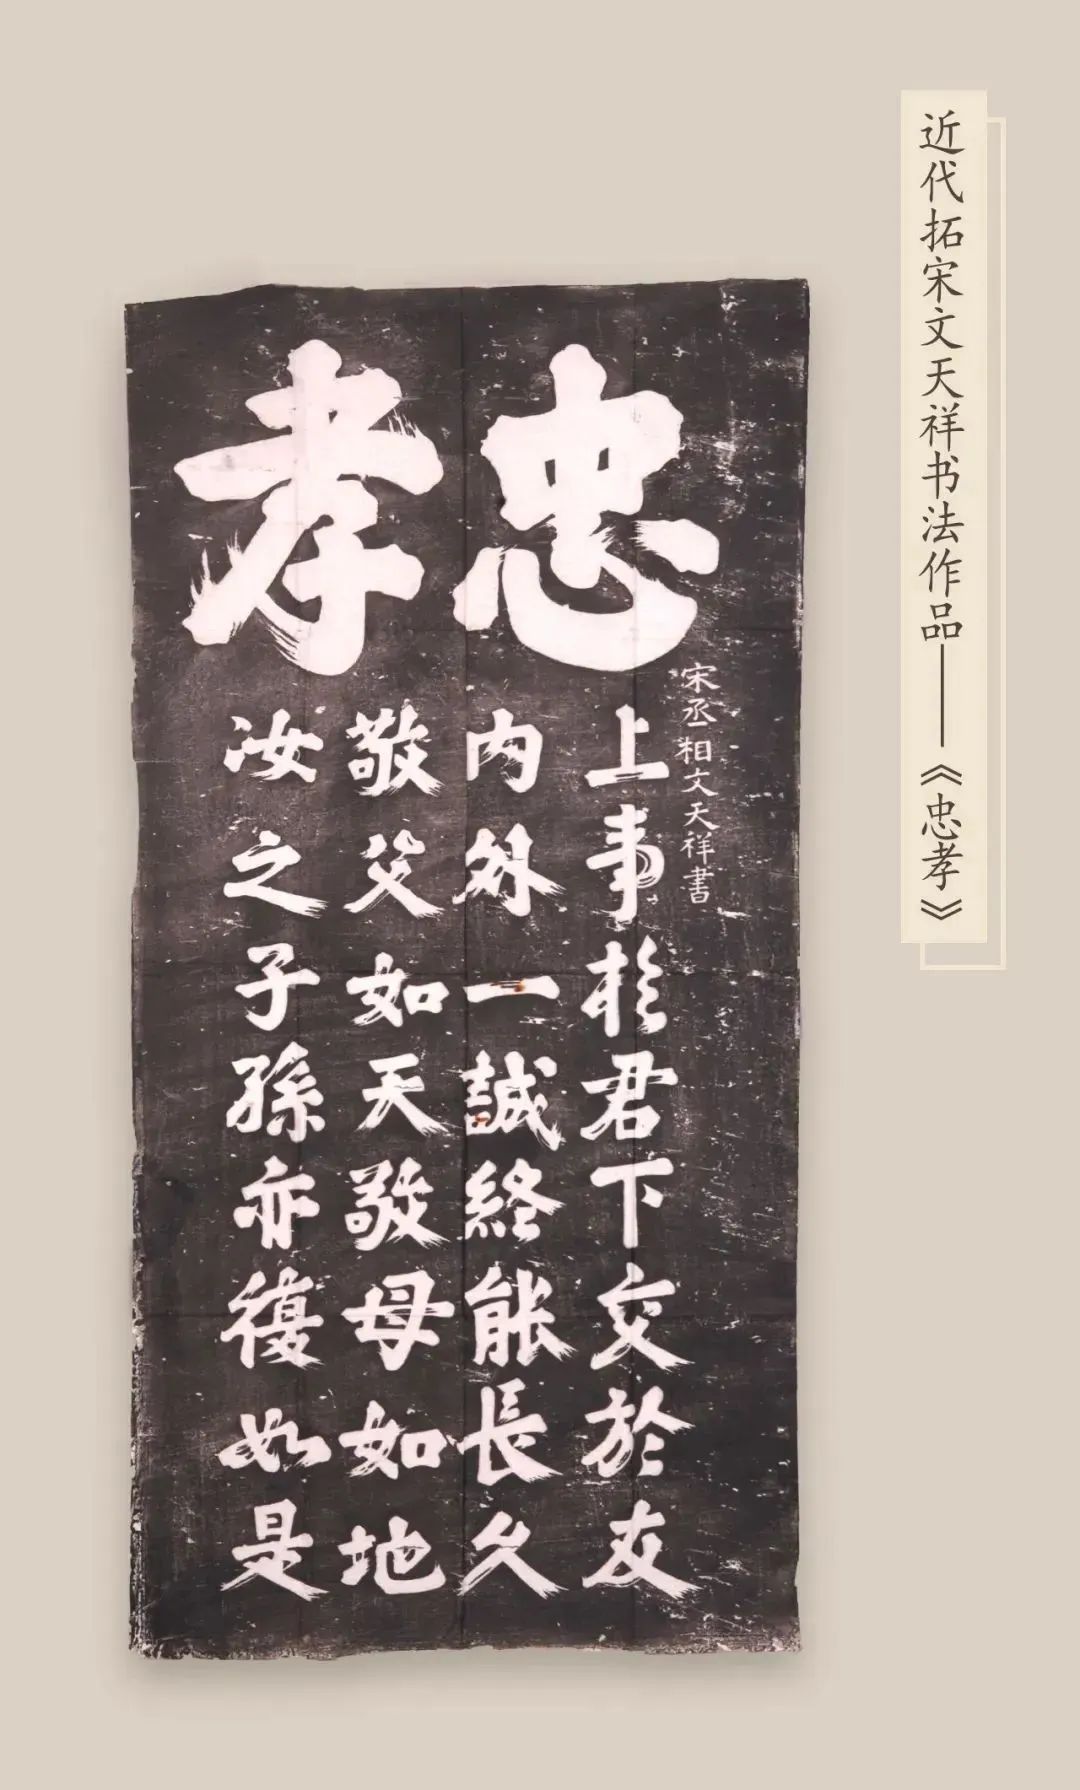 近代拓宋文天祥书法作品——《忠孝》
忠孝
宋丞相文天祥書
上事於君下交於友
内外一誠終能長久
敬父如天敬母如地
汝之子孫亦復如是